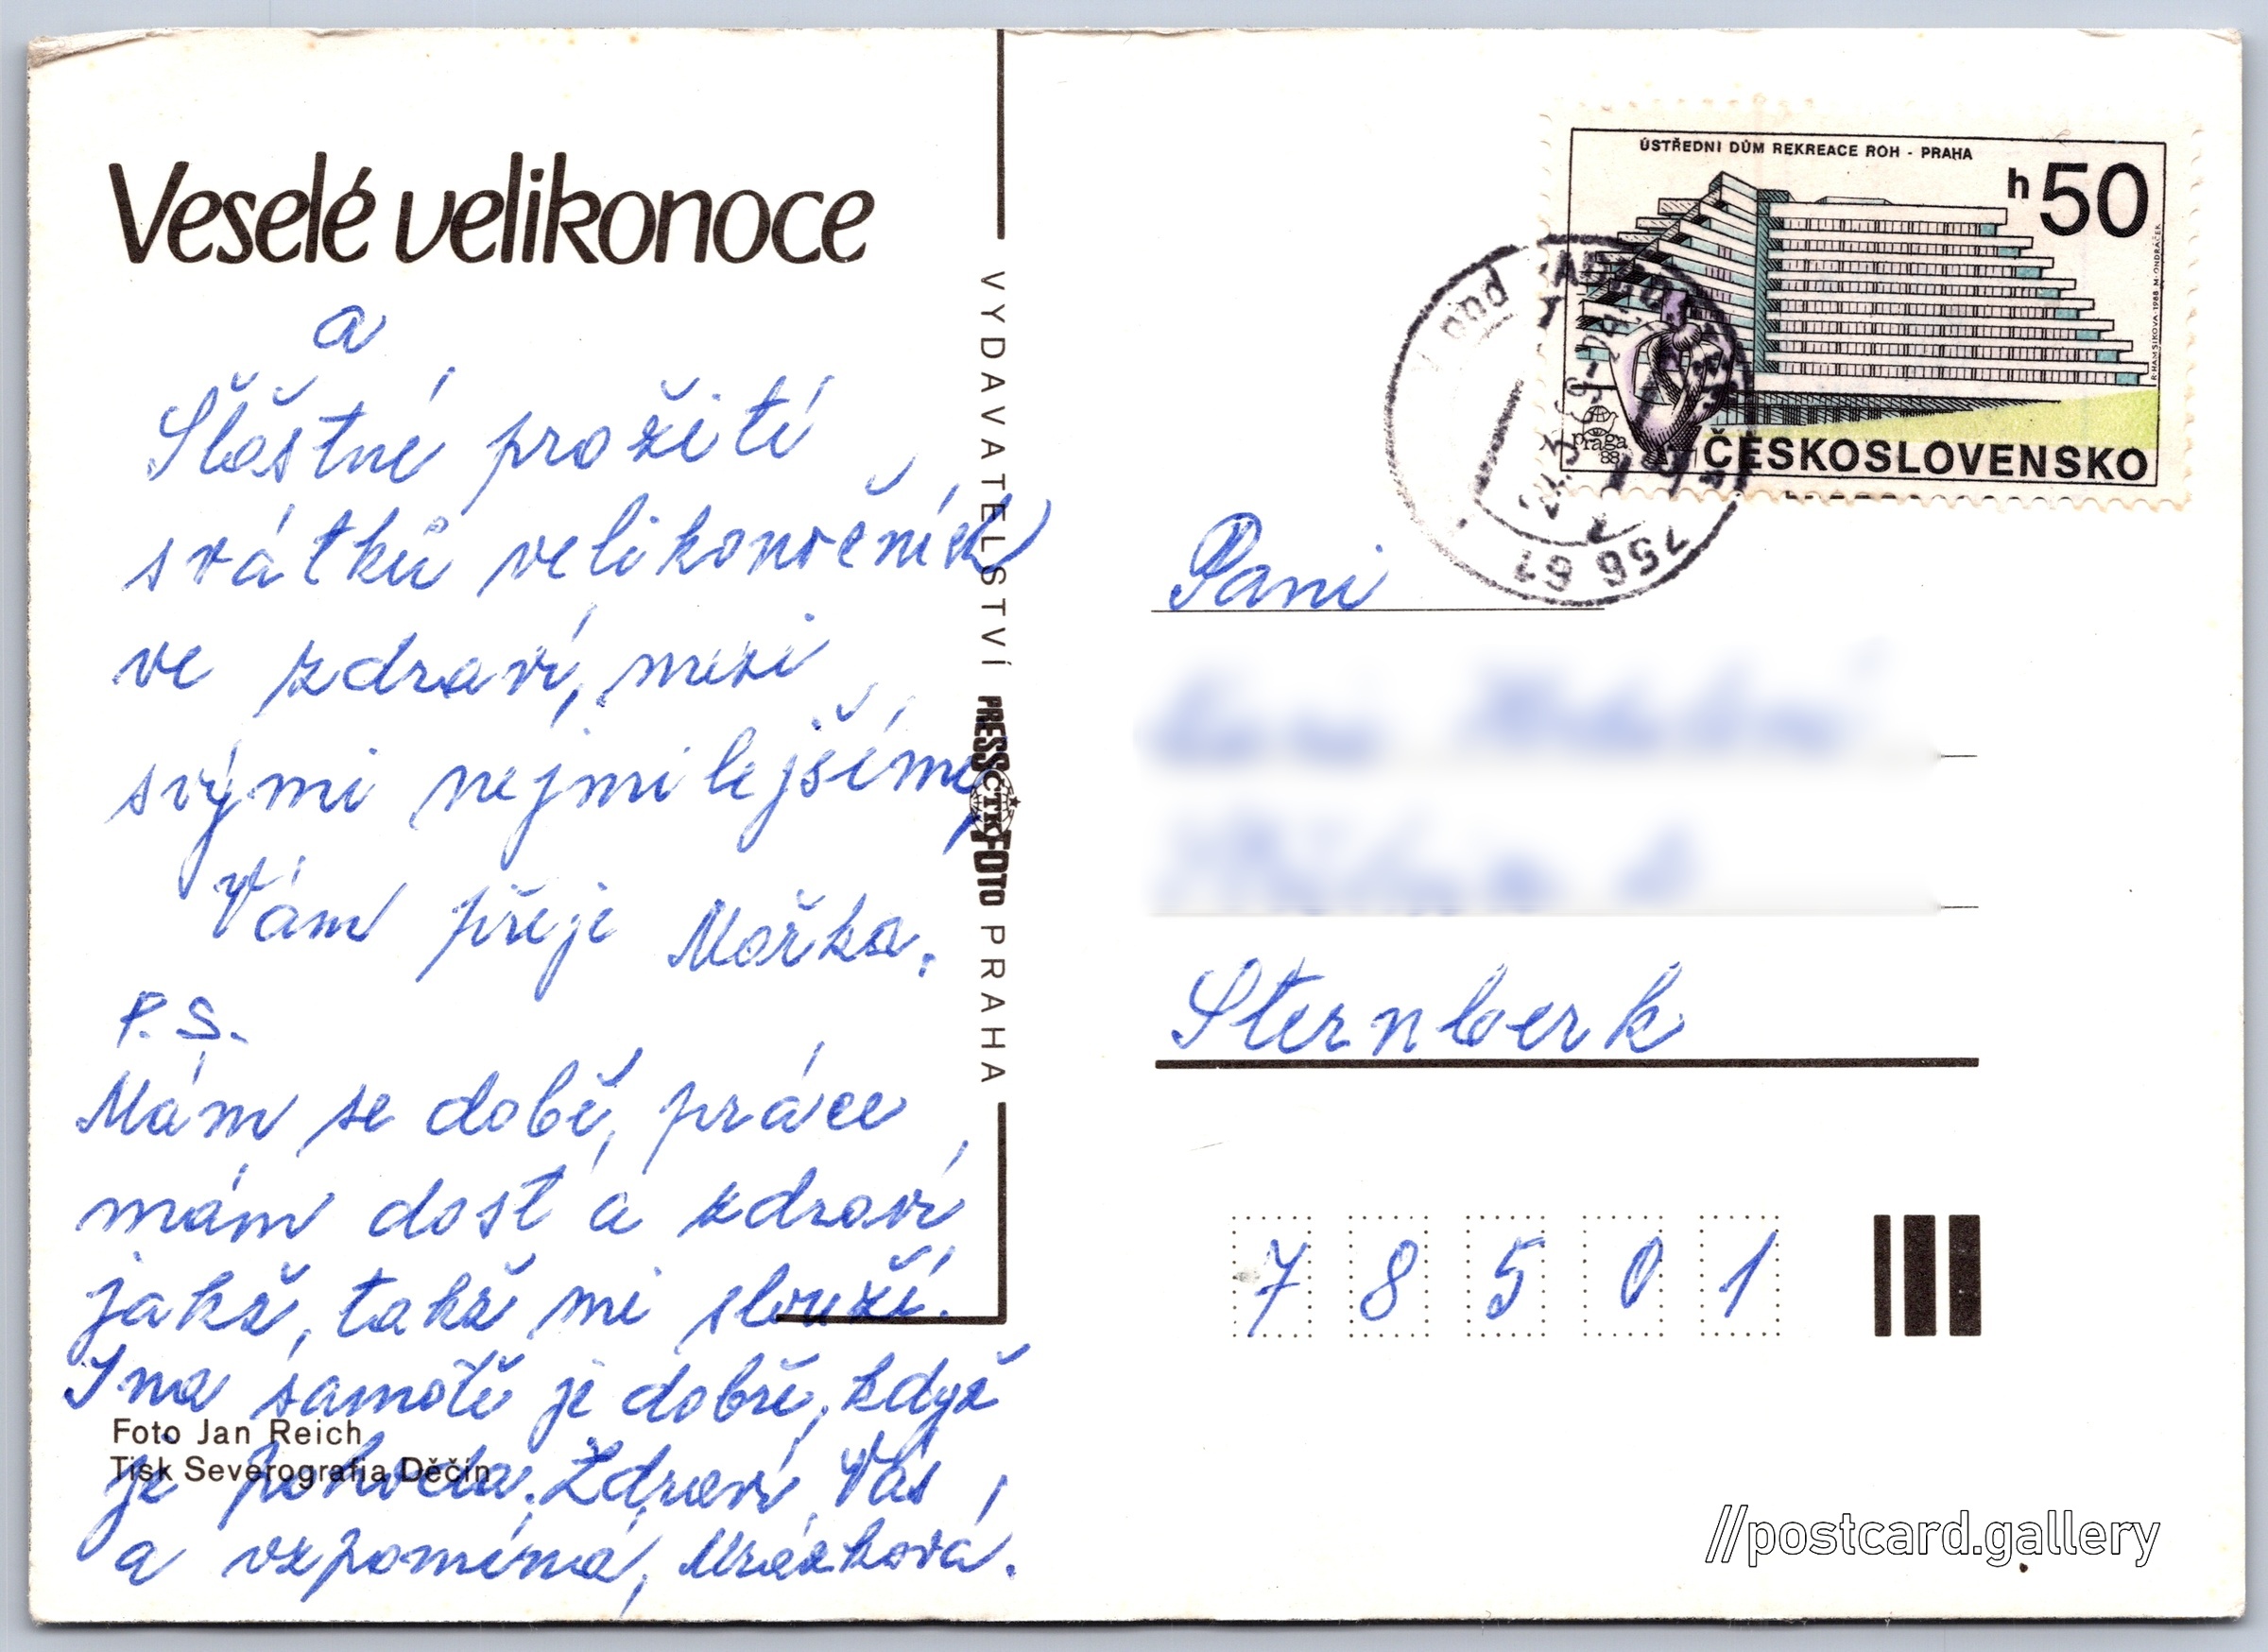 Veselé velikonoce
a
Šťastné prožití
svátků velikonočních
ve zdraví, mezi
svými nejmilejšími,
Vám přeje Mařka.
P.S.
Mám se dobře, práce
mám dost a zdraví
jakž, takž mi slouží.
I na samotě je dobře, když
je pohoda. Zdraví Vás
a vzpomíná, Mrázková.
Foto Jan Reich
Tisk Severografia Děčín
VYDAVATELSTVÍ PRESSČTKFOTO PRAHA
ÚSTŘEDNÍ DŮM REKREACE ROH - PRAHA
h50
R. HAMSÍKOVÁ-1988 M. ONDRÁČEK
praga
88
ČESKOSLOVENSKO
pod
756 61
Paní
Šternberk
78501
//postcard.gallery